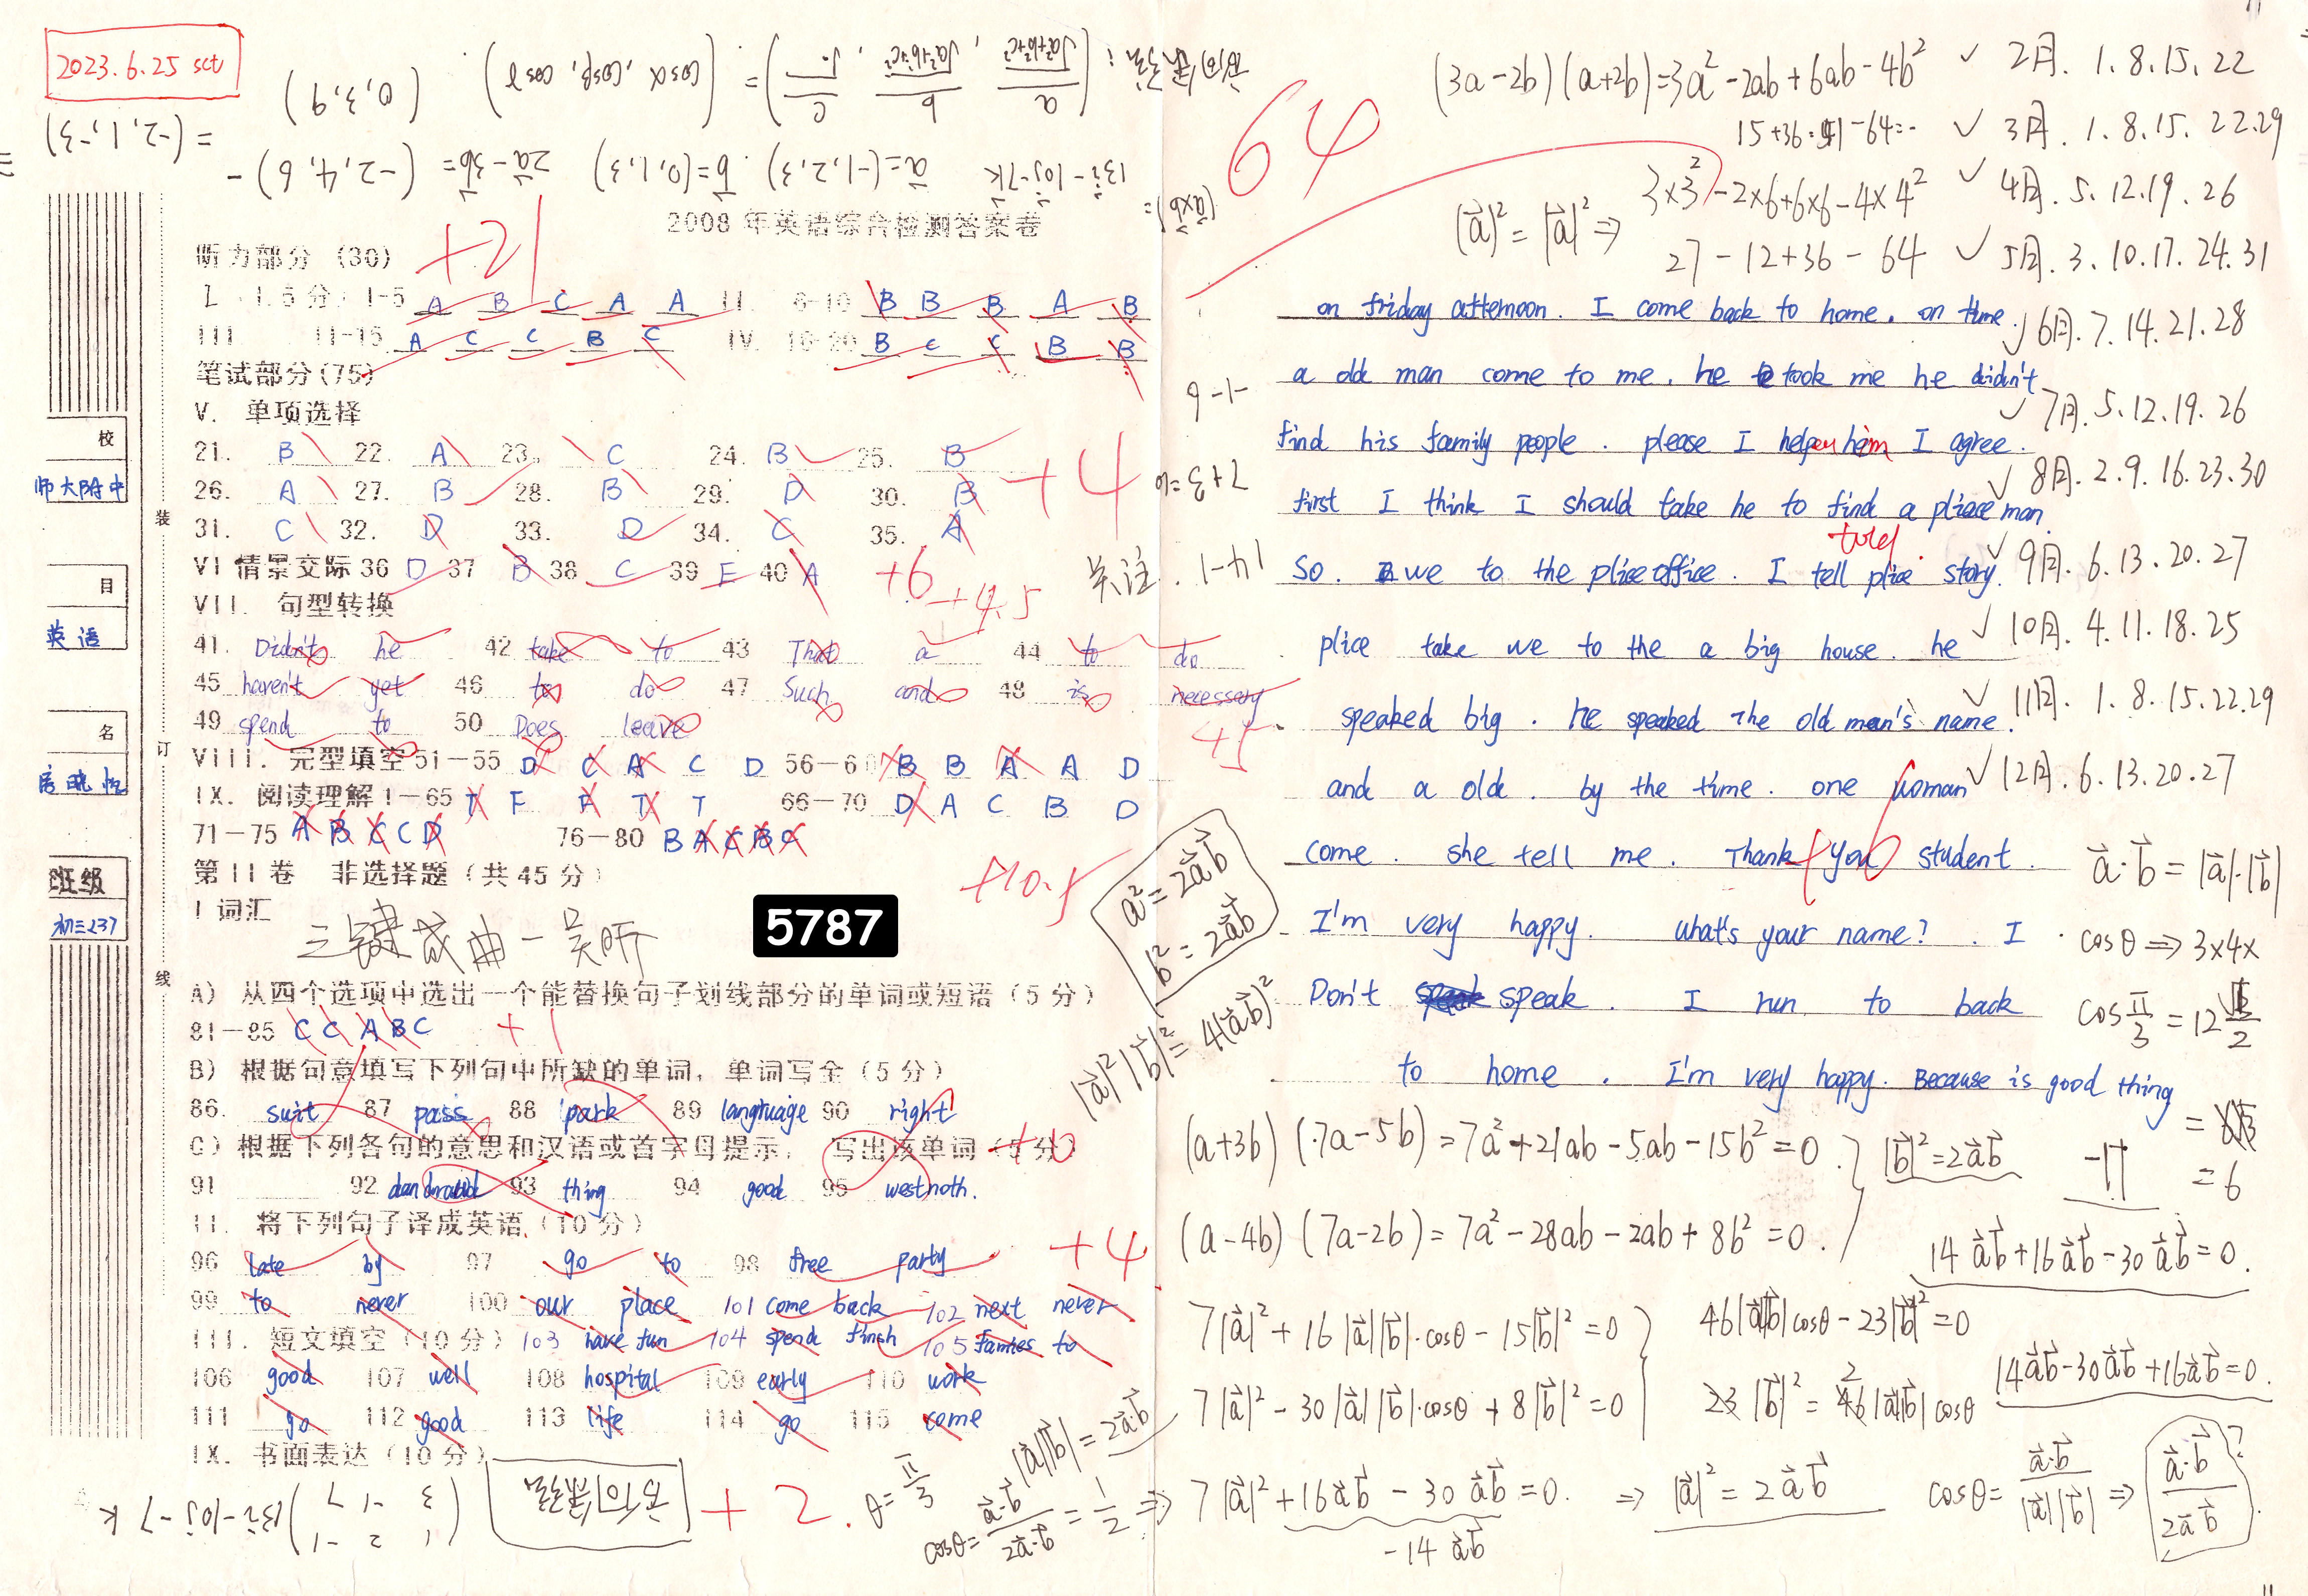 2023.6.25 sct
= (-2,1,-3)
2a⃗-3b⃗= (-2,4,6) -
(0,3,9)
a⃗=(-1,2,3) . b⃗=(0,1,3)
13i-10j-7k
(a⃗×b⃗)=
(cosα, cosβ, cosγ)
64
2008年英语综合检测答案卷
听力部分 (30)
+21
1-5 A B C A A II. 6-10 B B B A B
III 11-15 A C C B C IV. 16-20 B C C B B
笔试部分(75)
V. 单项选择
21. B 22. A 23. C 24. B 25. B
26. A 27. B 28. B 29. D 30. B
+4
31. C 32. D 33. D 34. C 35. A
VI 情景交际 36 D 37 B 38 C 39 E 40 A
+6
+4.5
VII. 句型转换
41. Didn't he 42 take to 43 That a 44 to do
45 haven't yet 46 to do 47 Such and 48 is necessary
49 spend to 50 Does leave
+5
VIII. 完型填空 51-55 D C A C D 56-60 B B A A D
IX. 阅读理解 1-65 T F F T T 66-70 D A C B D
71-75 A B C C D 76-80 B A C B C
+10.5
第II卷 非选择题 (共45分)
I 词汇
三键成曲一吴昕
5787
A) 从四个选项中选出一个能替换句子划线部分的单词或短语 (5分)
81-85 C C A B C
+1
B) 根据句意填写下列句中所缺的单词, 单词写全 (5分)
86. suit 87 pass 88 park 89 langtruaige 90 right
C) 根据下列各句的意思和汉语或首字母提示, 写出该单词 (5分)
91 92 93 thing 94 good 95 westnoth.
II. 将下列句子译成英语 (10分)
+4
96 late by 97 go to 98 free party
99 to never 100 our place 101 come back 102 next never
III. 短文填空 (10分) 103 have fun 104 spend finsh 105 famies to
106 good 107 well 108 hospital 109 early 110 work
111 go 112 good 113 life 114 go 115 come
IX. 书面表达 (10分)
+2.
13i-10j-7k
校
师大附中
目
英语
名
班级
初三237
装
订
线
(3a-2b)(a+2b)=3a²-2ab+6ab-4b²
3×3²-2×6+6×6-4×4²
(a⃗)²=|a⃗|²⇒
27-12+36-64
2月. 1.8.15.22
3月. 1.8.15.22.29
4月. 5.12.19.26
5月. 3.10.17.24.31
6月. 7.14.21.28
7月. 5.12.19.26
8月. 2.9.16.23.30
9月. 6.13.20.27
10月. 4.11.18.25
11月. 1.8.15.22.29
12月. 6.13.20.27
on friday afternoon. I come back to home. on time.
a old man come to me. he took me he didn't
find his family people. please I help him I agree.
first I think I should take he to find a pliece man.
told
So. we to the plice office. I tell plice story.
plice take we to the a big house. he
speaked big. he speaked The old man's name.
and a old. by the time. one woman
come. she tell me. Thank you student.
6
I'm very happy. what's your name? . I
Don't speak. I run to back
to home. I'm very happy. Because is good thing
-1-9
7+3=10
关注. 1-41
a⃗·b⃗=|a⃗|·|b⃗|
cosθ⇒3×4×
= 6
a²=2a⃗b⃗
b²=2a⃗b⃗
|a⃗|²|b⃗|²=4(a⃗b⃗)²
(a+3b)(7a-5b)=7a²+21ab-5ab-15b²=0.
|b⃗|²=2a⃗b⃗
(a-4b)(7a-2b)=7a²-28ab-2ab+8b²=0.
14a⃗b⃗+16a⃗b⃗-30a⃗b⃗=0.
7|a⃗|²+16|a⃗||b⃗|·cosθ-15|b⃗|²=0
46|a⃗||b⃗|cosθ-23|b⃗|²=0
7|a⃗|²-30|a⃗||b⃗|·cosθ+8|b⃗|²=0
23|b⃗|²=46|a⃗||b⃗|cosθ
14a⃗b⃗-30a⃗b⃗+16a⃗b⃗=0.
|a⃗||b⃗|=2a⃗·b⃗
θ=π/3
cosθ=a⃗·b⃗/2a⃗·b⃗=1/2⇒
7|a⃗|²+16a⃗b⃗-30a⃗b⃗=0.
-14a⃗b⃗
⇒|a⃗|²=2a⃗b⃗
cosθ=a⃗·b⃗/|a⃗||b⃗|⇒a⃗·b⃗/2a⃗b⃗?